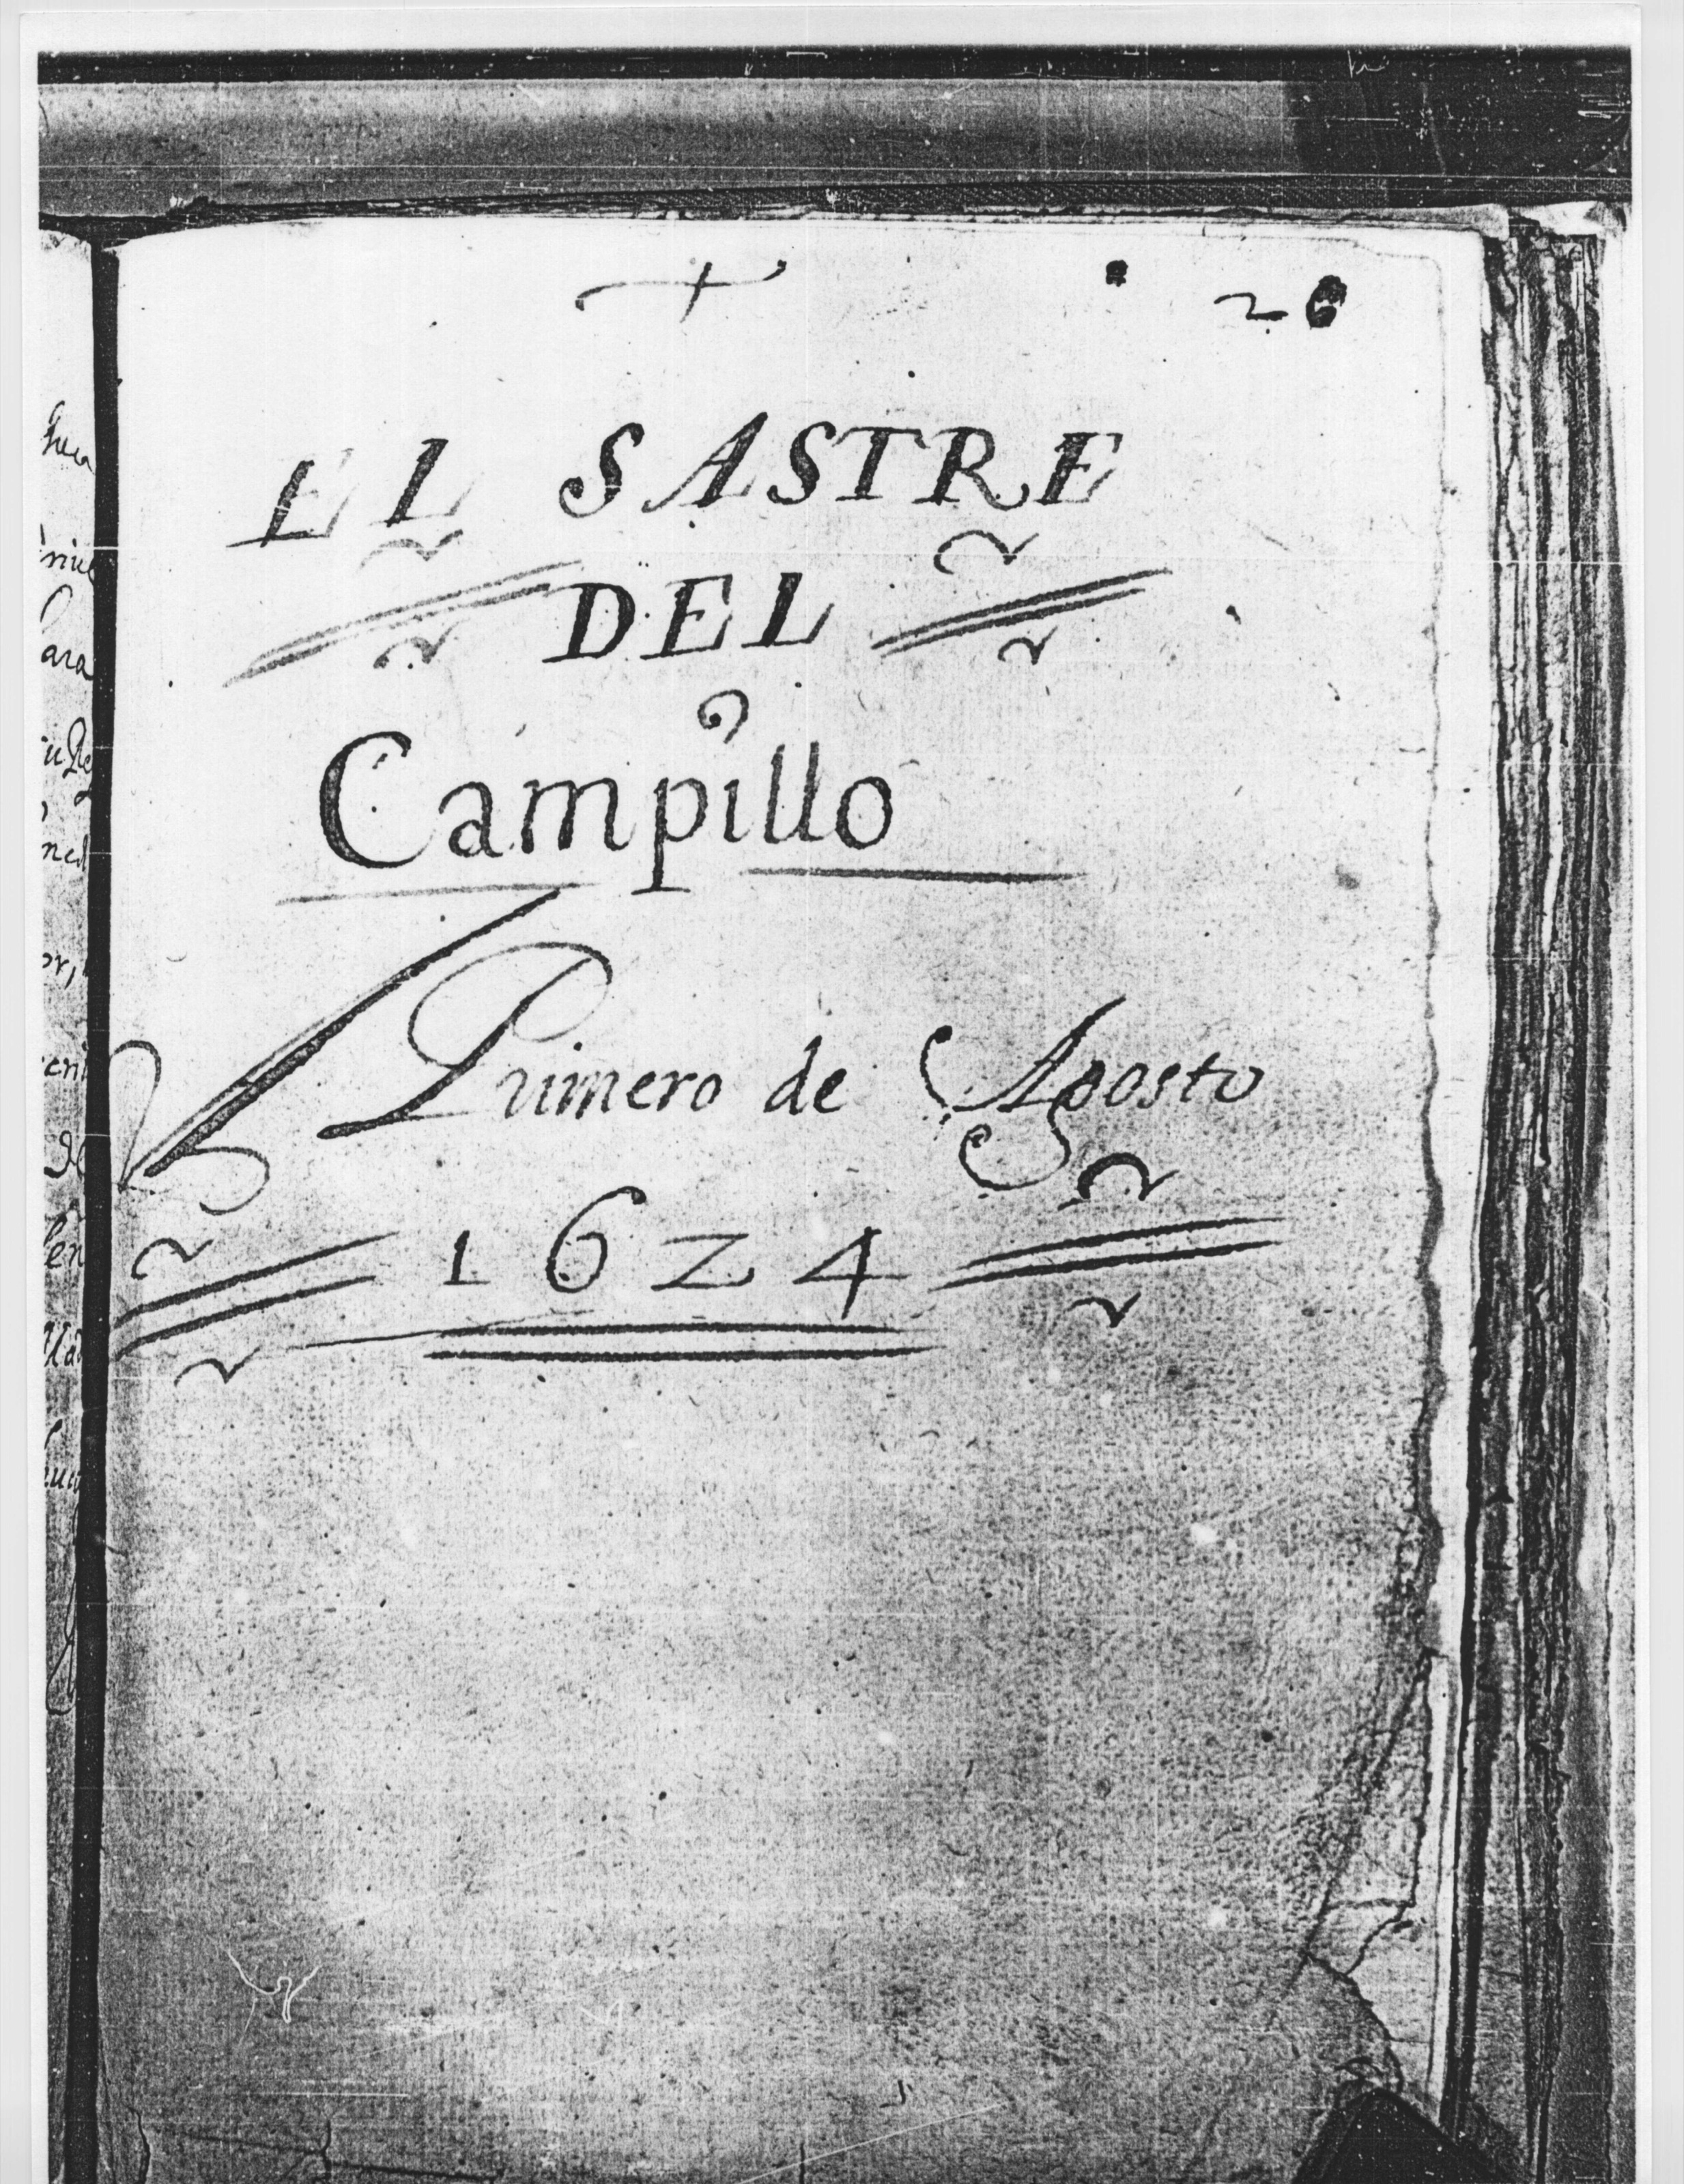 26
EL SASTRE
DEL
Campillo
Primero de Agosto
1624